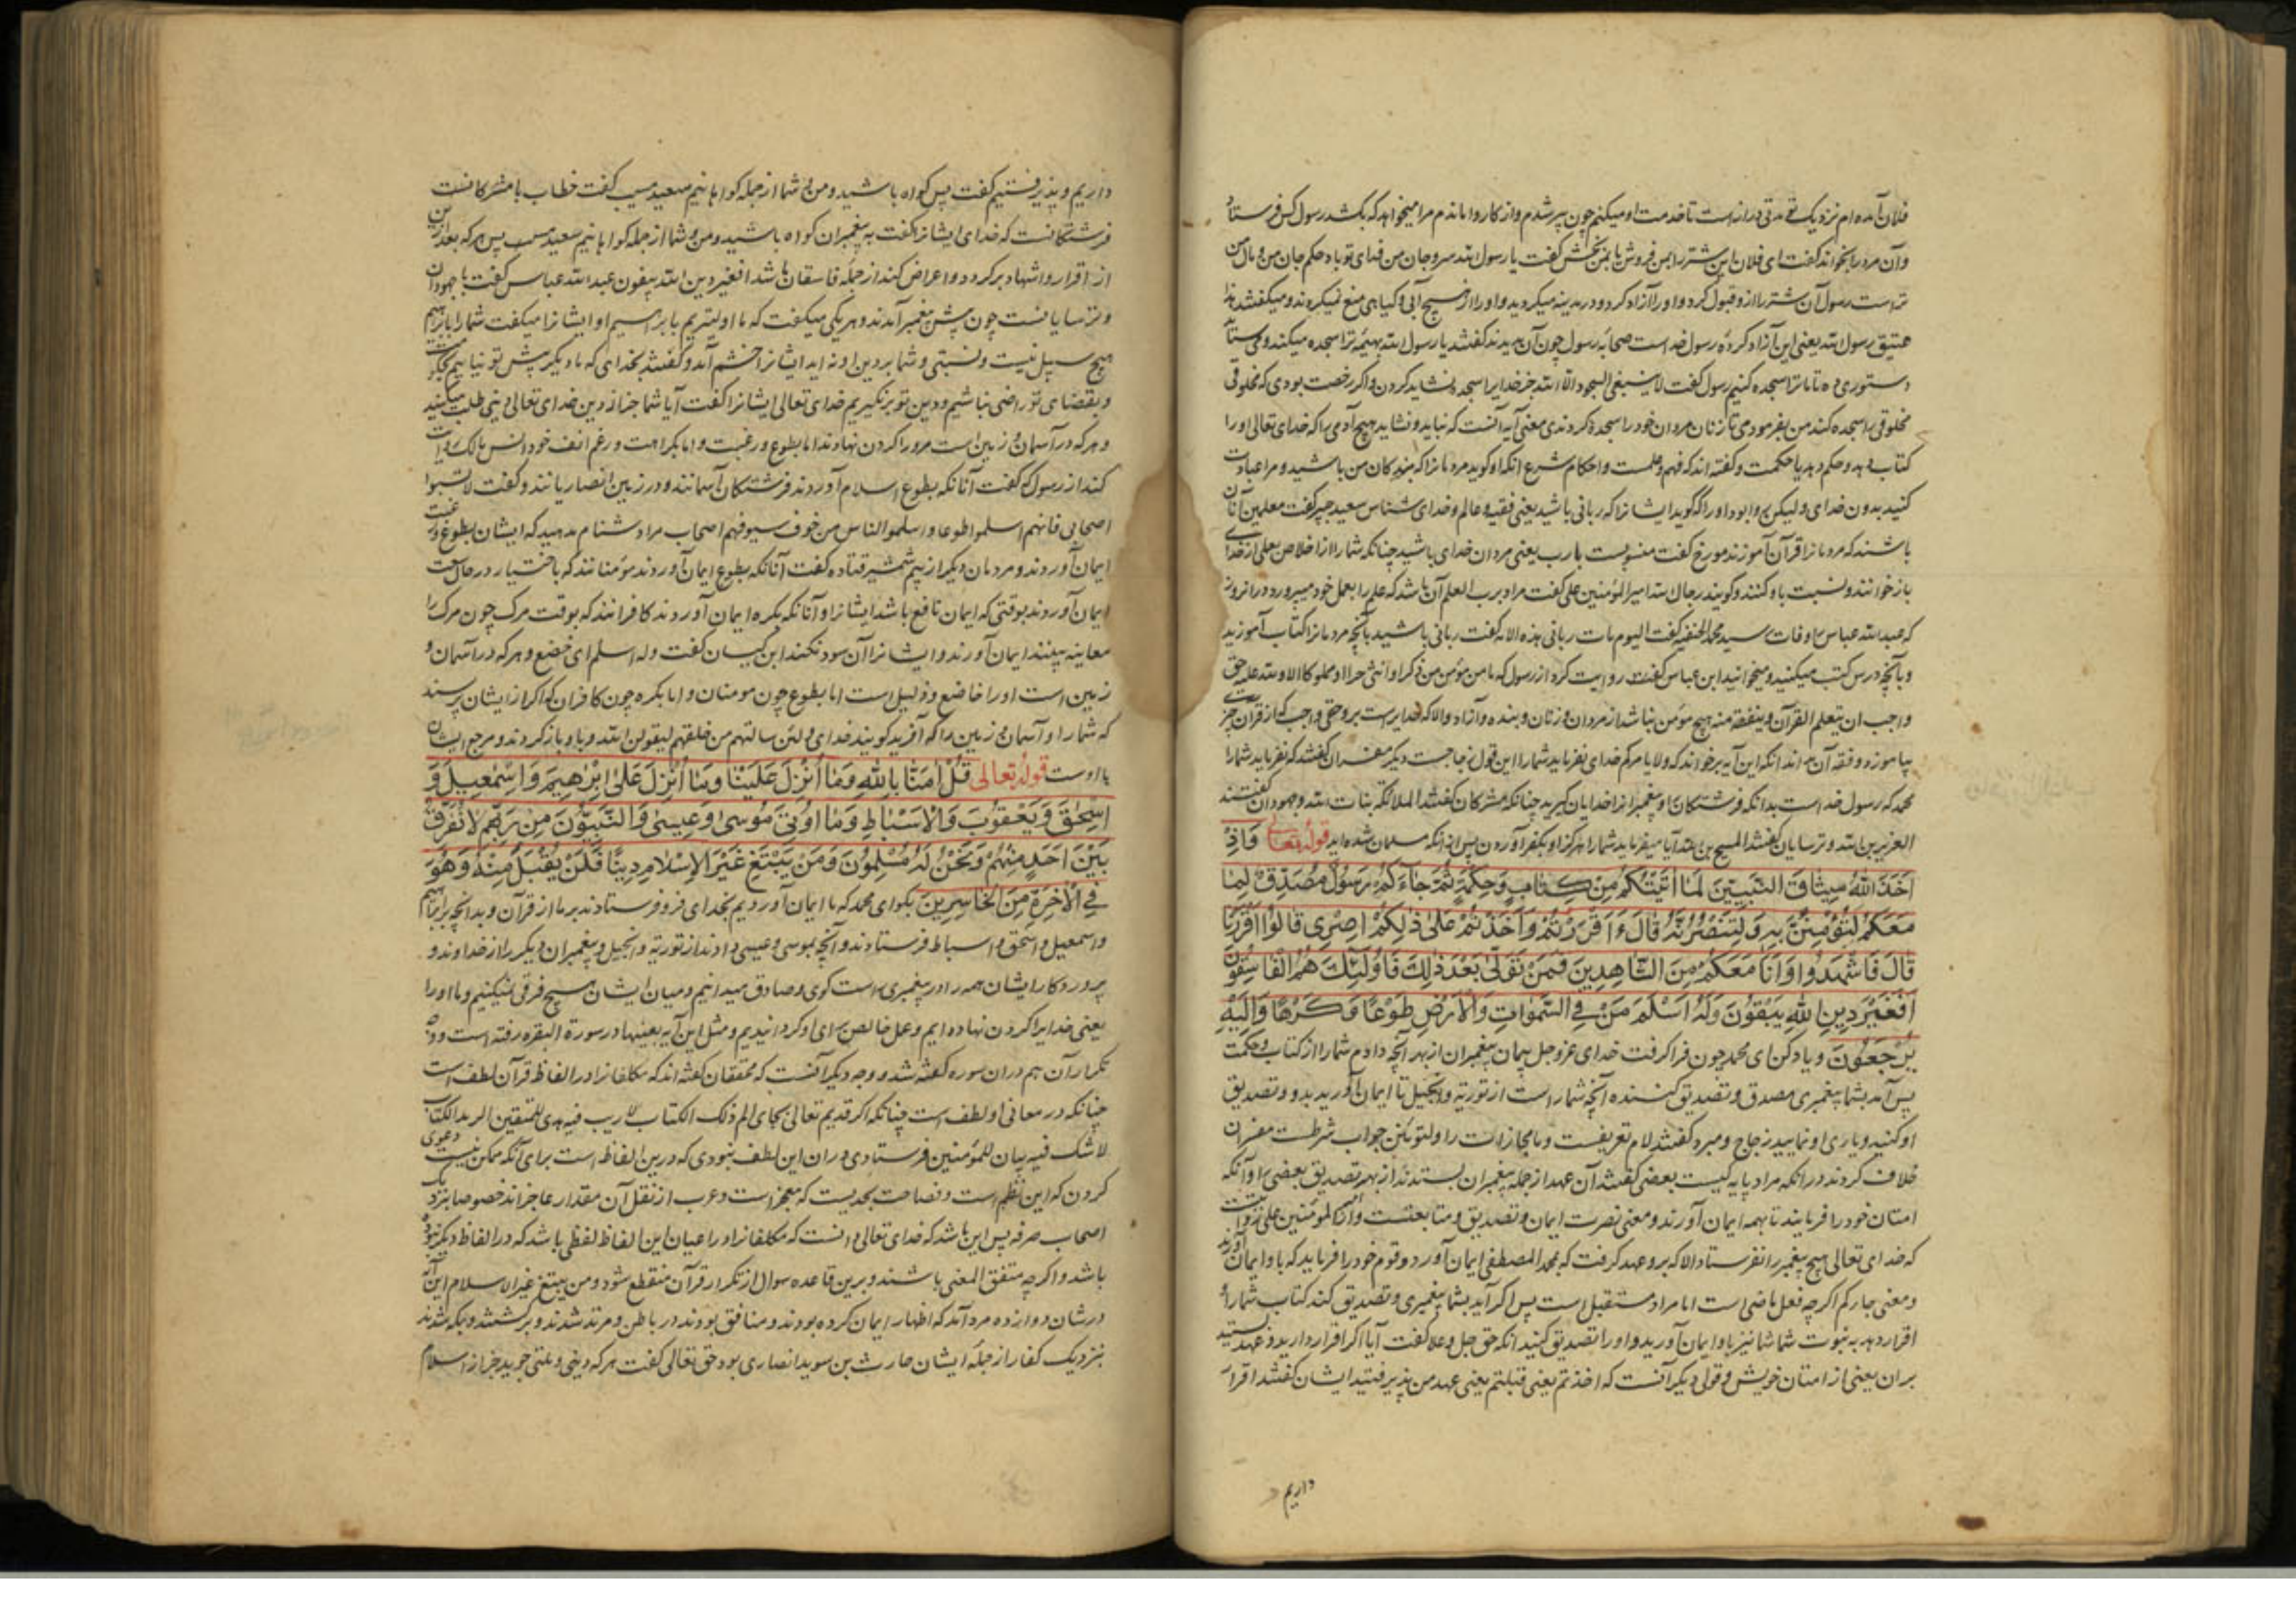 فلان آمده ام نزدیک تو مدتی درازست تا خدمت او میکنم چون پیر شدم و از کار وا ماندم مرا میخواهد که بکشد رسول کس فرستاد
و آن مرد را بخواند گفت ای فلان این شتر را بمن فروش یا بمن بخش گفت یا رسول الله سر و جان من فدای تو باد حکم جان من و مال من
تراست رسول آن شتر را ازو قبول کرد و او را آزاد کرد و در مدینه میگردید و او را از هیچ آبی و کیاهی منع نمیکردند و میکفتند هذا
عتیق رسول الله یعنی این آزاد کرده رسول خداست صحابه رسول چون آن بدیدند کفتند یا رسول الله بهیمه ترا سجده میکند
دستوری ده تا ما ترا سجده کنیم رسول گفت لا ینبغی السجود الا لله جز خدایرا سجده نشاید کردن و اکر رخصت بودی که مخلوقی
مخلوقی را سجده کند من بفرمودمی تا زنان مردان خود را سجده کردندی معنی آیه آنست که نباید و نشاید هیچ آدمی را که خدای تعالی او را
کتاب دهد و حکم دهد یا حکمت و کفته اند که فهم و علمست و احکام شرع انکه او کوید مردمانرا که بندکان من باشید و مرا عبادت
کنید بدون خدای و لیکن روا بود او را که گوید ایشانرا که ربانی باشید یعنی فقیه و عالم و خدای شناس سعید جبیر گفت معلمین آنان
باشند که مردمانرا قرآن آموزند مورخ گفت منسوبست با رب یعنی مردان خدای باشید چنانکه شما را از اخلاص بعلی از خدای
باز خوانند و نسبت باو کنند و کویند رجال الله امیر المؤمنین علی گفت مراد برب العلم آن باشد که علم را بعمل خود میپرورد در انروز
که عبد الله عباس را وفات رسید محمد الحنفیه گفت الیوم مات ربانی هذه الامه گفت ربانی باشید بانچه مردمانرا کتاب آموزید
و بآنچه درس کتب میکنید و میخوانید ابن عباس گفت روایت کرد از رسول که ما من مؤمن من ذکر او انثی حرا او مملوکا الا و لله علیه حق
واجب ان یتعلم القرآن و یتفقه منه هیچ مؤمن نباشد از مردان و زنان و بنده و آزاد والا که خدایراست برو حقی واجب که از قرآن چیزی
بیاموزد و فقه آن بداند انکه این آیه برخواند که ولا یامرکم خدای نفرماید شما را این قول زجاجست دیکر مفسران کفتند که نفرماید شما را
محمد که رسول خداست بدانکه فرشتکان و پیغمبرانرا خدایان گیرید چنانکه مشرکان کفتند الملائکه بنات الله و جهودان کفتند
العزیر بن الله و ترسایان کفتند المسیح بن الله آیا میفرماید شما را هرکز او بکفر آوردن پس از انکه مسلمان شده اید قوله تعالی وَاِذْ
اَخَذَ اللّٰهُ مِيثَاقَ النَّبِيّينَ لَمَا اٰتَيْتُكُمْ مِنْ كِتَابٍ وَحِكْمَةٍ ثُمَّ جَاۤءَكُمْ رَسُولٌ مُصَدِّقٌ لِمَا
مَعَكُمْ لَتُؤْمِنُنَّ بِهِ وَلَتَنْصُرُنَّهُ قَالَ ءَاَقْرَرْتُمْ وَاَخَذْتُمْ عَلىٰ ذٰلِكُمْ اِصْرِى قَالُوا اَقْرَرْنَا
قَالَ فَاشْهَدُوا وَاَنَا مَعَكُمْ مِنَ الشَّاهِدِينَ فَمَنْ تَوَلّىٰ بَعْدَ ذٰلِكَ فَاُولٰئِكَ هُمُ الْفَاسِقُونَ
اَفَغَيْرَ دِينِ اللّٰهِ يَبْغُونَ وَلَهُ اَسْلَمَ مَنْ فِي السَّمٰوَاتِ وَالْاَرْضِ طَوْعًا وَكَرْهًا وَاِلَيْهِ
يُرْجَعُونَ و یاد کن ای محمد چون فرا کرفت خدای عز و جل پیمان پیغمبران از بهر آنچه دادم شما را از کتاب و حکمت
پس آمد بشما پیغمبری مصدق و تصدیق کننده آنچه شما راست از توریة و انجیل تا ایمان آورید بدو و تصدیق
او کنید و یاری او نمایید زجاج و مبرد کفتند لام تعریفست و ما مجازات را و لتؤمنن جواب شرطست مفسران
خلاف کردند در انکه مراد بایه کیست بعضی کفتند آن عهد از جمله پیغمبران بستدند از بهر تصدیق بعضی را و آنکه
امتان خود را فرمایند تا بهمه ایمان آورند و معنی نصرت ایمان و تصدیق و متابعتست و امیر المومنین علی روایت
که خدای تعالی هیچ پیغمبر را نفرستاد الا که برو عهد کرفت که بمحمد المصطفی ایمان آورد و قوم خود را فرماید که باو ایمان آورند
و معنی جاءکم اکر چه فعل ماضی است اما مراد مستقبل است پس اکر آید بشما پیغمبری و تصدیق کند کتاب شما را
اقرار دهد به نبوت شما شما نیز باو ایمان آورید و او را تصدیق کنید انکه حق جل و علا کفت آیا اکر اقرار دارید و عهد بستید
بران یعنی از امتان خویش و قولی دیکر آنست که اخذتم یعنی قبلتم یعنی عهد من پذیرفتید ایشان کفتند اقرار
داریم
داریم و پذیرفتیم گفت پس کواه باشید و من و شما از جمله کواهانیم سعید مسیب کفت خطاب با مشرکانست
فرشتکانست که خدای ایشانرا گفت به پیغمبران کواه باشید و من و شما از جمله کواهانیم سعید مسیب پس هر که بعد ازین
از اقرار و اشهاد بر کردد و اعراض کند از جمله فاسقان باشد افغیر دین الله یبغون عبد الله عباس گفت با جهودان
و ترسایانست چون پیش پیغمبر آمدند و هر یکی میکفت که ما اولیتریم با برهیم او ایشانرا میکفت شما را بابرهیم
هیچ سبیل نیست و نسبتی و شما بر دین او نه اید ایشانرا خشم آمد و کفتند بخدای که ما دیکر پیش تو نیاییم بحکومت
و بقضای تو راضی نباشیم و دین تو برنگیریم خدای تعالی ایشانرا کفت آیا شما جز از دین خدای تعالی دینی طلب میکنید
و هر که در آسمان و زمین است مرورا کردن نهادند اما بطوع و رغبت و اما بکراهت و رغم انف خود انس مالک روایت
کند از رسول که گفت آنانکه بطوع اسلام آوردند فرشتکان آسمانند و در زمین انصاریانند و کفت لا تسبوا
اصحابی فانهم اسلموا طوعا و اسلموا الناس من خوف سیوفهم اصحاب مرا دشنام مدهید که ایشان بطوع و رغبت
ایمان آوردند و مردمان دیکر از بیم شمشیر قتاده کفت آنانکه بطوع ایمان آوردند مؤمنانند که باختیار در حال سعت
ایمان آوردند بوقتی که ایمان نافع باشد ایشانرا و آنانکه بکره ایمان آوردند کافرانند که بوقت مرک چون مرک را
معاینه بینند ایمان آورند و ایشانرا آن سود نکند ابن کیسان کفت وله اسلم ای خضع و هر که در آسمان و
زمین است او را خاضع و ذلیل است اما بطوع چون مومنان و اما بکره چون کافران که اکر از ایشان پرسند
که شما را و آسمان و زمین را که آفرید کویند خدای و لئن سالتهم من خلقهم لیقولن الله و باو باز کردند و مرجع ایشان
با اوست قوله تعالی قُلْ اٰمَنَّا بِاللّٰهِ وَمَا اُنْزِلَ عَلَيْنَا وَمَا اُنْزِلَ عَلىٰ اِبْرٰهِيمَ وَاِسْمٰعِيلَ وَ
اِسْحٰقَ وَيَعْقُوبَ وَالْاَسْبَاطِ وَمَا اُوتِيَ مُوسىٰ وَعِيسىٰ وَالنَّبِيُّونَ مِنْ رَبِّهِمْ لَا نُفَرِّقُ
بَيْنَ اَحَدٍ مِنْهُمْ وَنَحْنُ لَهُ مُسْلِمُونَ وَمَنْ يَبْتَغِ غَيْرَ الْاِسْلَامِ دِينًا فَلَنْ يُقْبَلَ مِنْهُ وَهُوَ
فِي الْاٰخِرَةِ مِنَ الْخَاسِرِينَ بکو ای محمد که ما ایمان آوردیم بخدای فرو فرستادند بر ما از قرآن و بدانچه بر ابراهیم
و اسمعیل و اسحق و اسباط فرستادند و آنچه بموسی و عیسی دادند از توریة و انجیل و پیغمبران دیکر را از خداوند و
پروردکار ایشان همه را در پیغمبری راست کوی و صادق میدانیم و میان ایشان هیچ فرقی نمیکنیم و ما او را
یعنی خدایرا کردن نهاده ایم و عمل خالص برای او کردانیدیم و مثل این آیه بعینها در سورة البقره رفته است و وجه
تکرار آن هم دران سوره کفته شد و وجه دیکر آنست که محققان کفته اند که مکلفانرا در الفاظ قرآن لطف است
چنانکه در معانی او لطف است چنانکه اکر قدیم تعالی بجای الم ذلک الکتاب لا ریب فیه هدی للمتقین الر هذا الکتاب
لا شک فیه بیان للمؤمنین فرستادی دران این لطف نبودی که درین الفاظ است برای آنکه ممکن نیست دعوی
کردن که این نظم است و فصاحت بحدیست که معجز است و عرب از نقل آن مقدار عاجزاند خصوصا بنزدیک
اصحاب صرفه پس این باشد که خدای تعالی دانست که مکلفانرا در اعیان این الفاظ لفظی باشد که در الفاظ دیکر نبود
باشد و اکر چه متفق المعنی باشند و برین قاعده سوال از تکرار قرآن منقطع شود و من یبتغ غیر الاسلام این آیه
در شان دوازده مرد آمد که اظهار ایمان کرده بودند و منافق بودند در باطن و مرتد شدند و بر کشتند و بمکه شدند
بنزدیک کفار از جمله ایشان حارث بن سوید انصاری بود حق تعالی کفت هر که دینی و ملتی جوید جز از اسلام